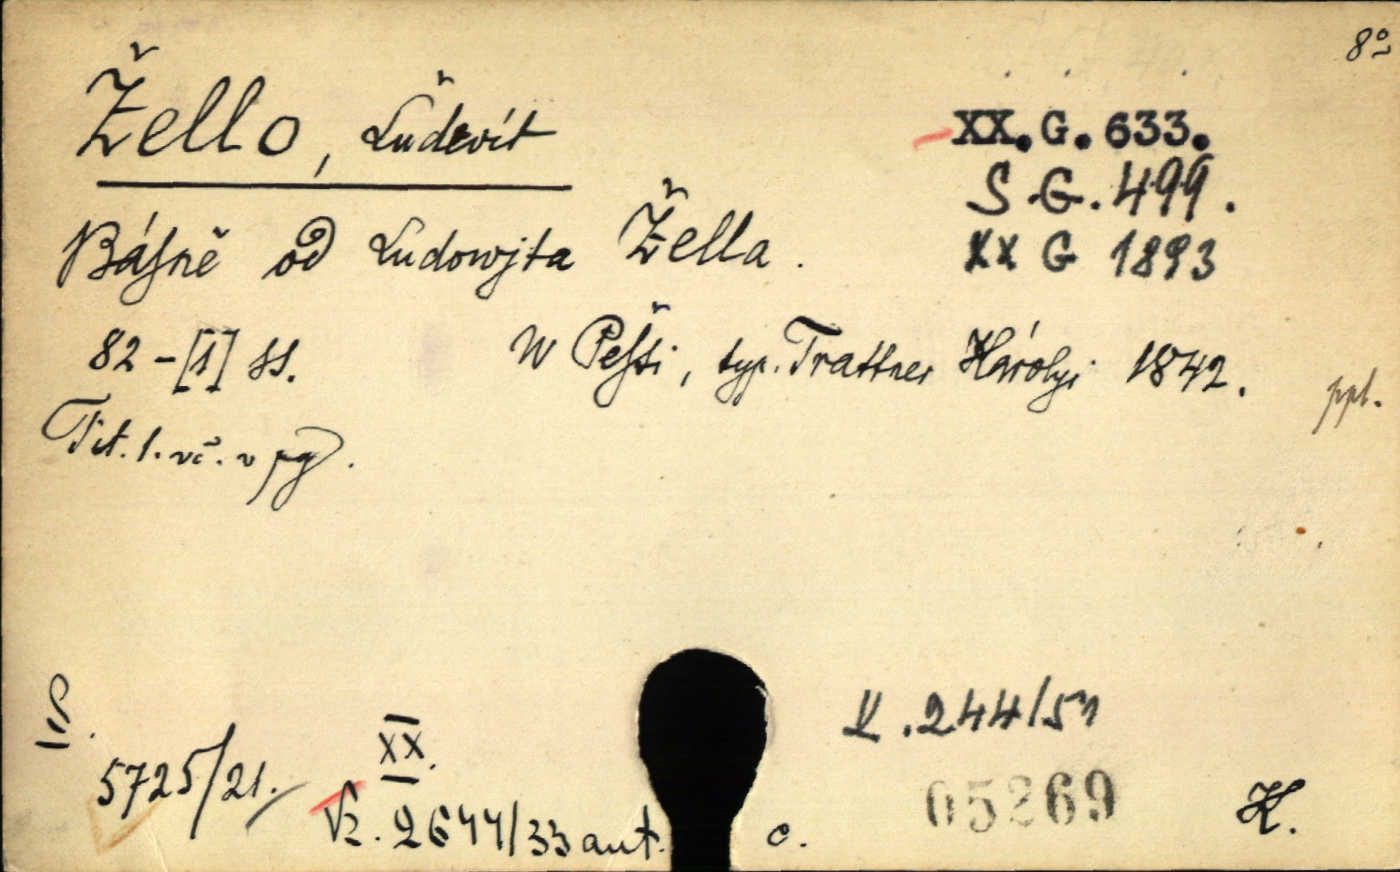 8°
Žello, Ludevít
XX.G.633.
S G.499.
XX G 1893
Básně od Ludowjta Žella.
82-[1] ss. W Pešti, typ. Trattner Károlyi 1842.
ppl.
Tit. l. vč. v pg.
5725/21.
XX.
Vz. 2644/33 ant. c.
V.244/51
05269
K.